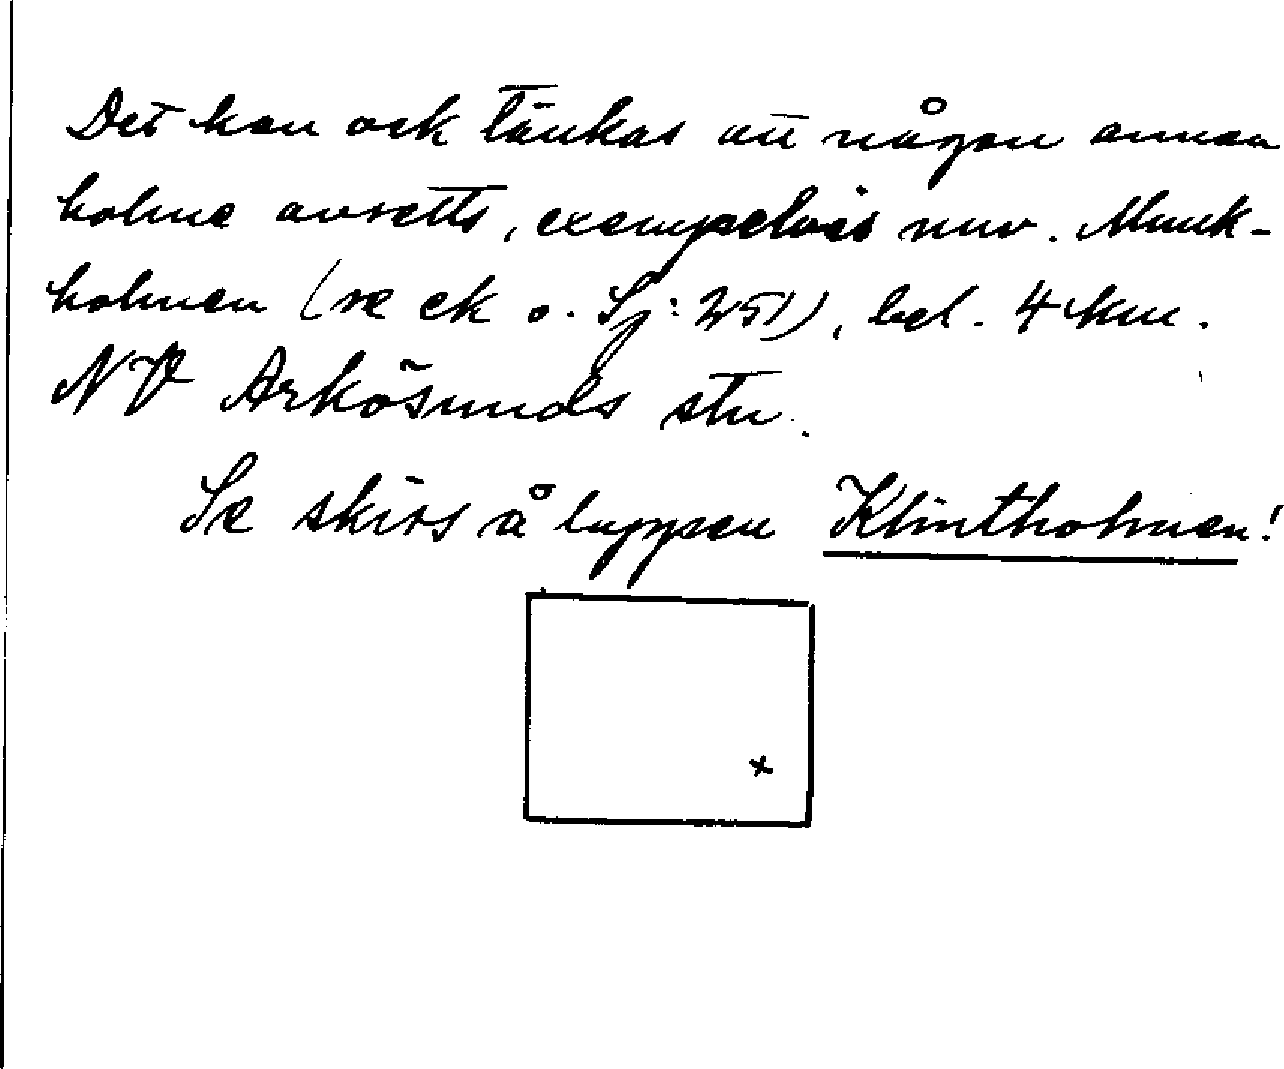 Det kan ock tänkas att någon annan
holme avsetts, exempelvis nuv. Munk-
holmen (se ek o. Sj: 251), bel. 4 km.
NV Arkösunds stn.
Se skiss å lappen Klintholmen!
x